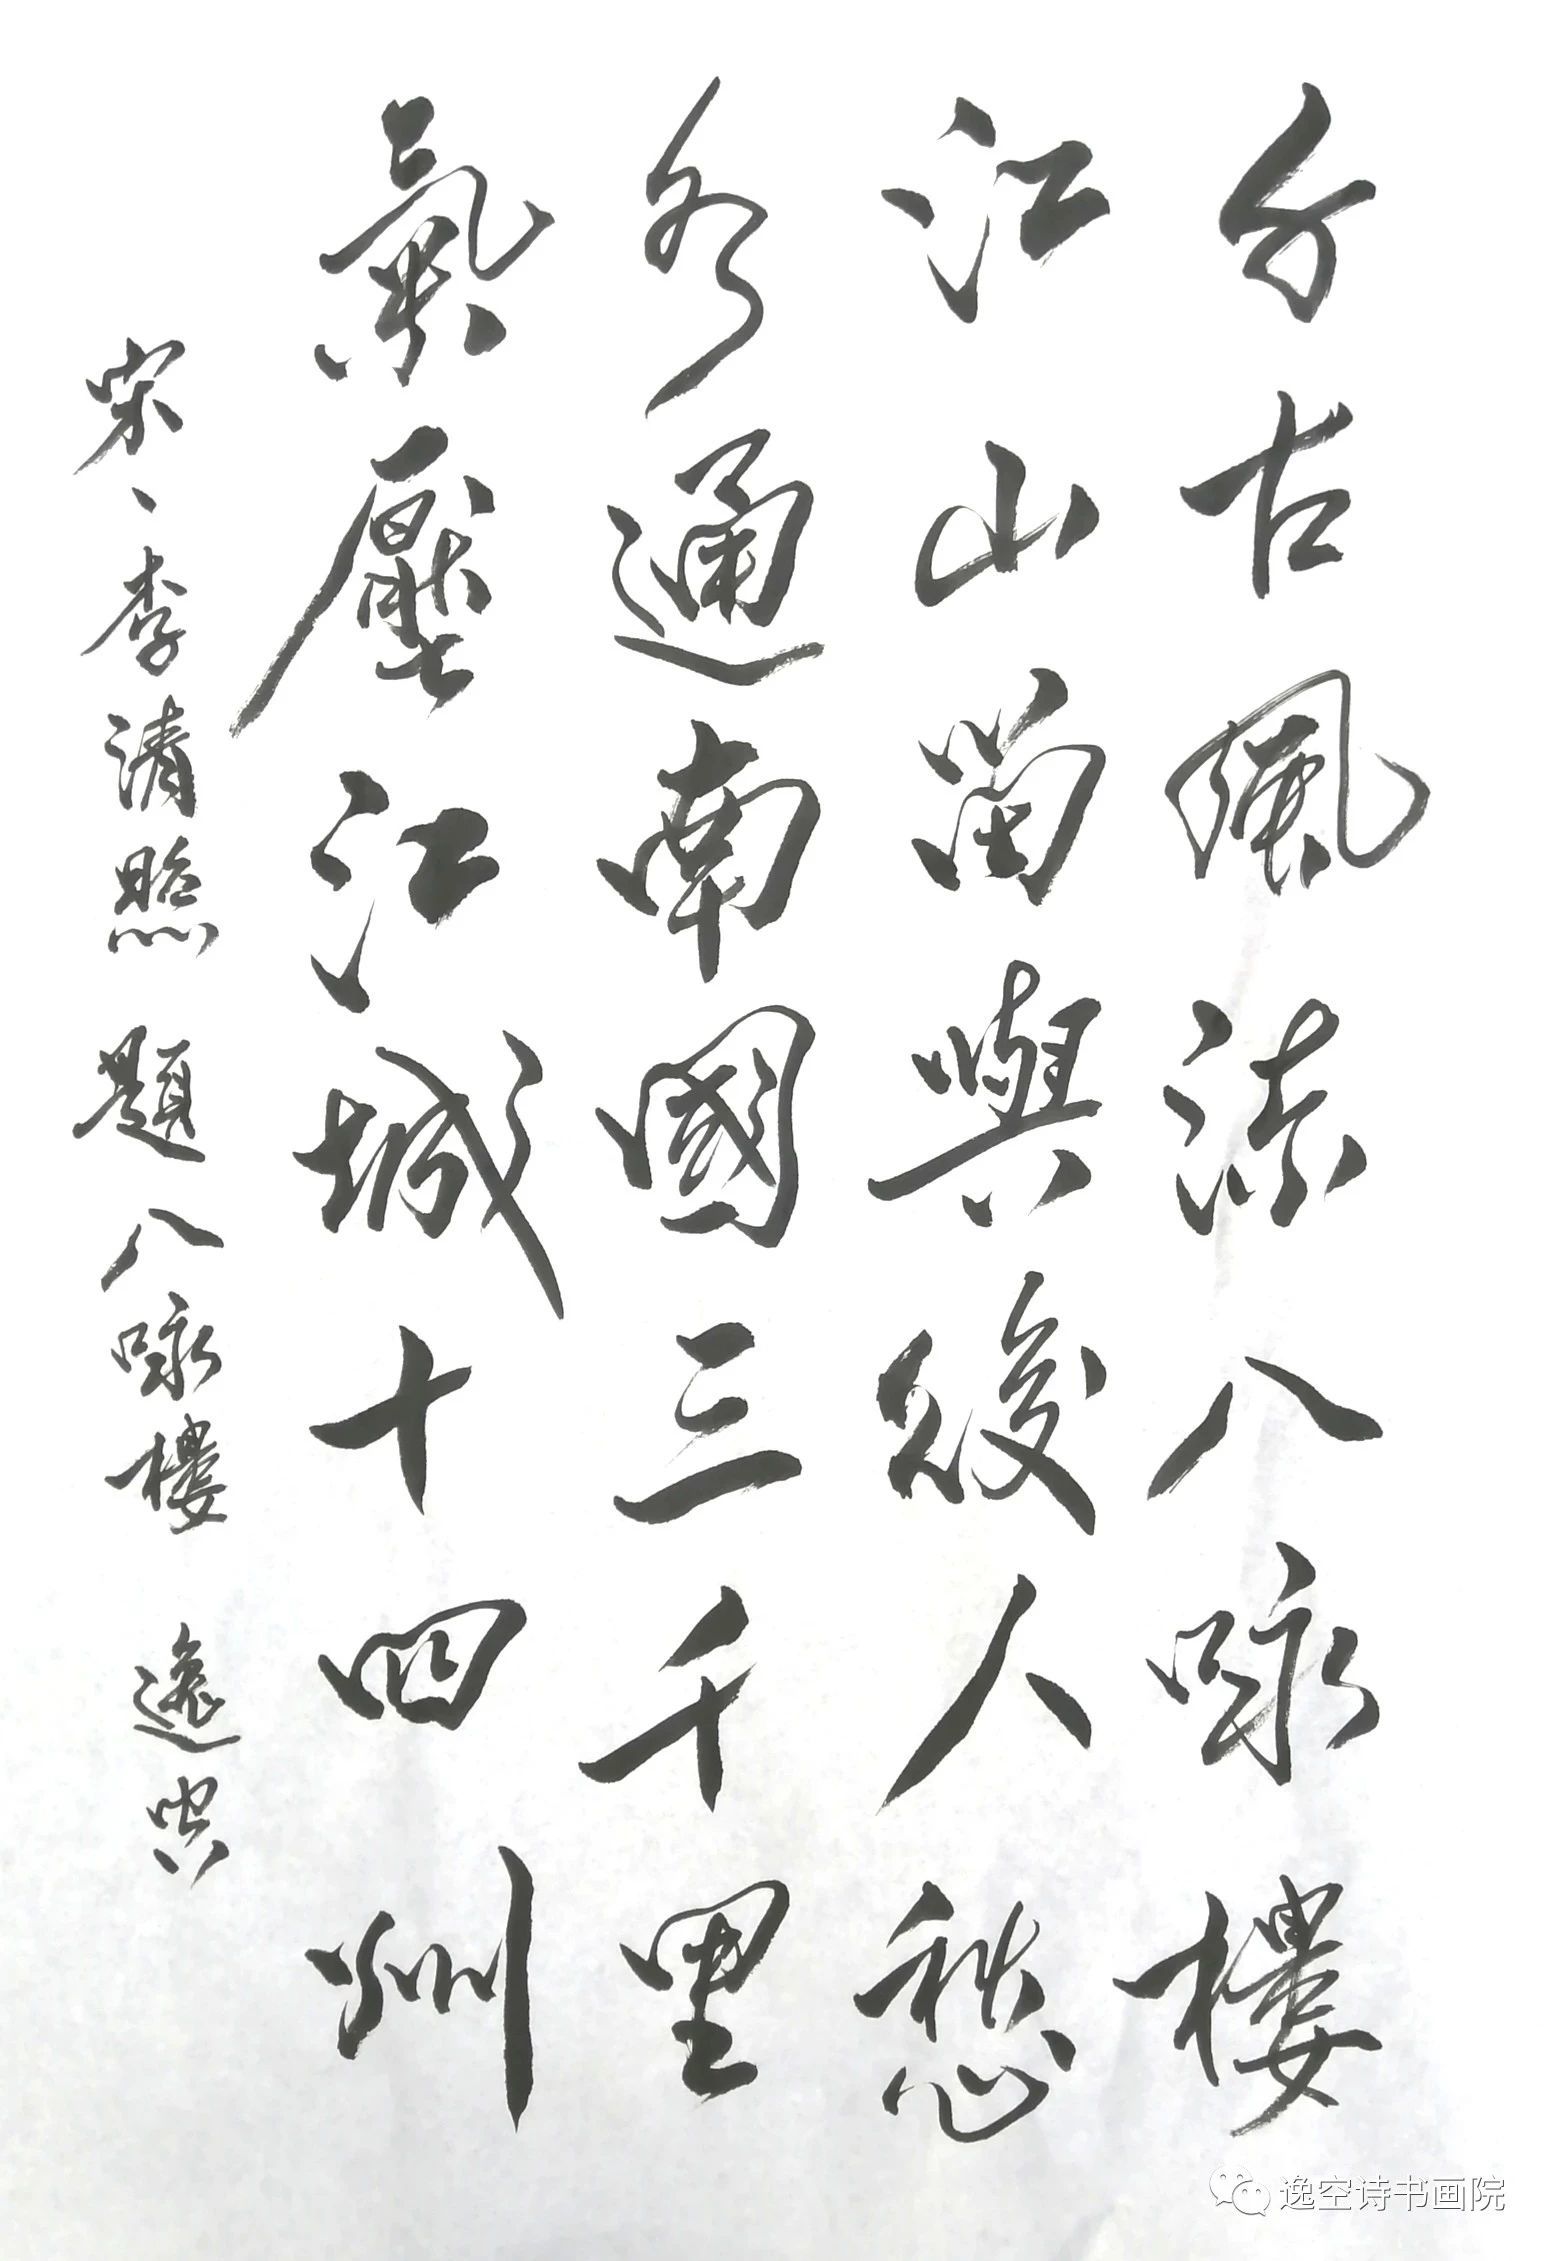 古風流八咏樓
江山留與後人愁
水通南國三千里
氣壓江城十四州
宋、李清照 題八咏樓 逸空
逸空诗书画院